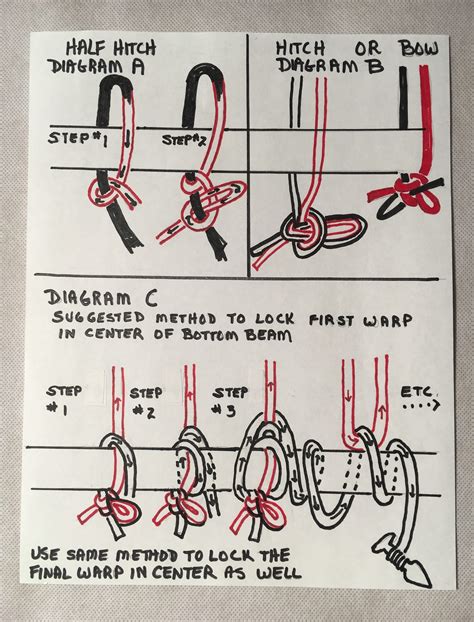 HALF HITCH
DIAGRAM A
STEP #1
STEP #2
HITCH OR BOW
DIAGRAM B
DIAGRAM C
SUGGESTED METHOD TO LOCK FIRST WARP
IN CENTER OF BOTTOM BEAM
STEP
#1
STEP
#2
STEP
#3
ETC.
USE SAME METHOD TO LOCK THE
FINAL WARP IN CENTER AS WELL